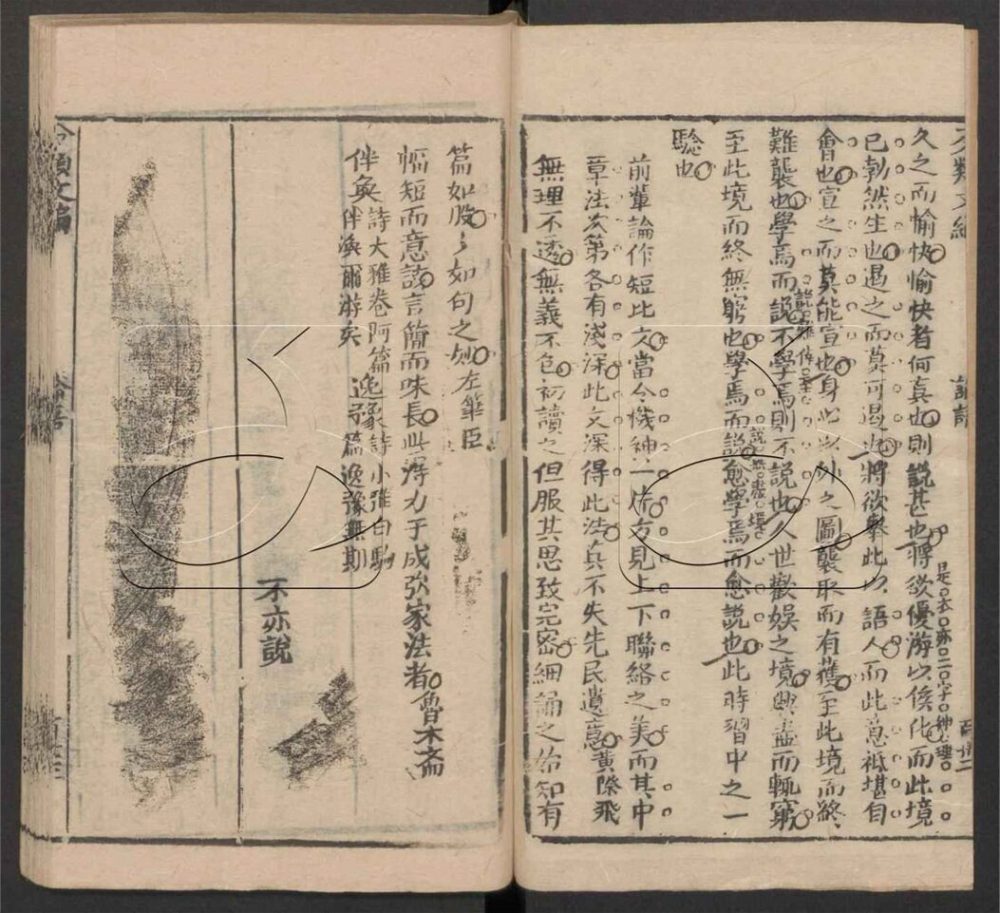 久之而愉快愉快者何真也則說甚也將欲優游以俟化而此境
已勃然生也遏之而莫可遏也將欲舉此以語人而此意祗堪自
會也宣之而莫能宣也身心以外之圖襲取而有獲至此境而終
難襲也學焉而說不學焉則不說也人世歡娛之境興盡而輒窮
至此境而終無窮也學焉而說愈學焉而愈說也此時習中之一
騐也
前輩論作短比文當令機神一片方見上下聯絡之美而其中
章法次第各有淺深此文深得此法兵不失先民遺意黃際飛
無理不透無義不包初讀之但服其思致完密細誦之始知有
篇如股股如句之妙左華臣
幅短而意該言簡而味長此得力于成弘家法者魯木斋
伴奐詩大雅卷阿篇
伴渙爾游矣
逸豫詩小雅白駒
篇逸豫無期
不亦說